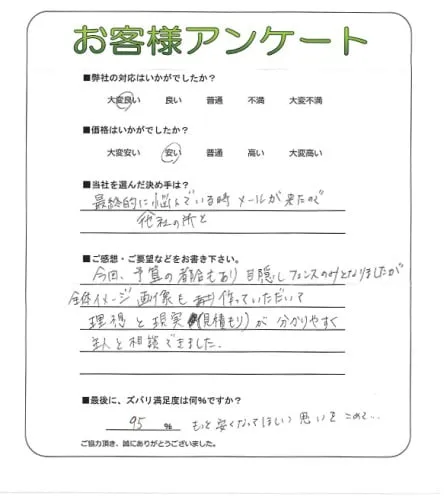 お客様アンケート
■弊社の対応はいかがでしたか?
大変良い 良い 普通 不満 大変不満
■価格はいかがでしたか?
大変安い 安い 普通 高い 大変高い
■当社を選んだ決め手は?
最終的に悩んでいる時 メールが来たので
他社の所と
■ご感想・ご要望などをお書き下さい。
今回、予算の都合もあり 目隠しフェンスのみとなりましたが
全体イメージ画像も 作っていただいて
理想と現実(見積もり)が 分かりやすく
主人と相談できました.
■最後に、ズバリ満足度は何%ですか?
95 % もっと安くなってほしい思いをこめて...
ご協力頂き、誠にありがとうございました。